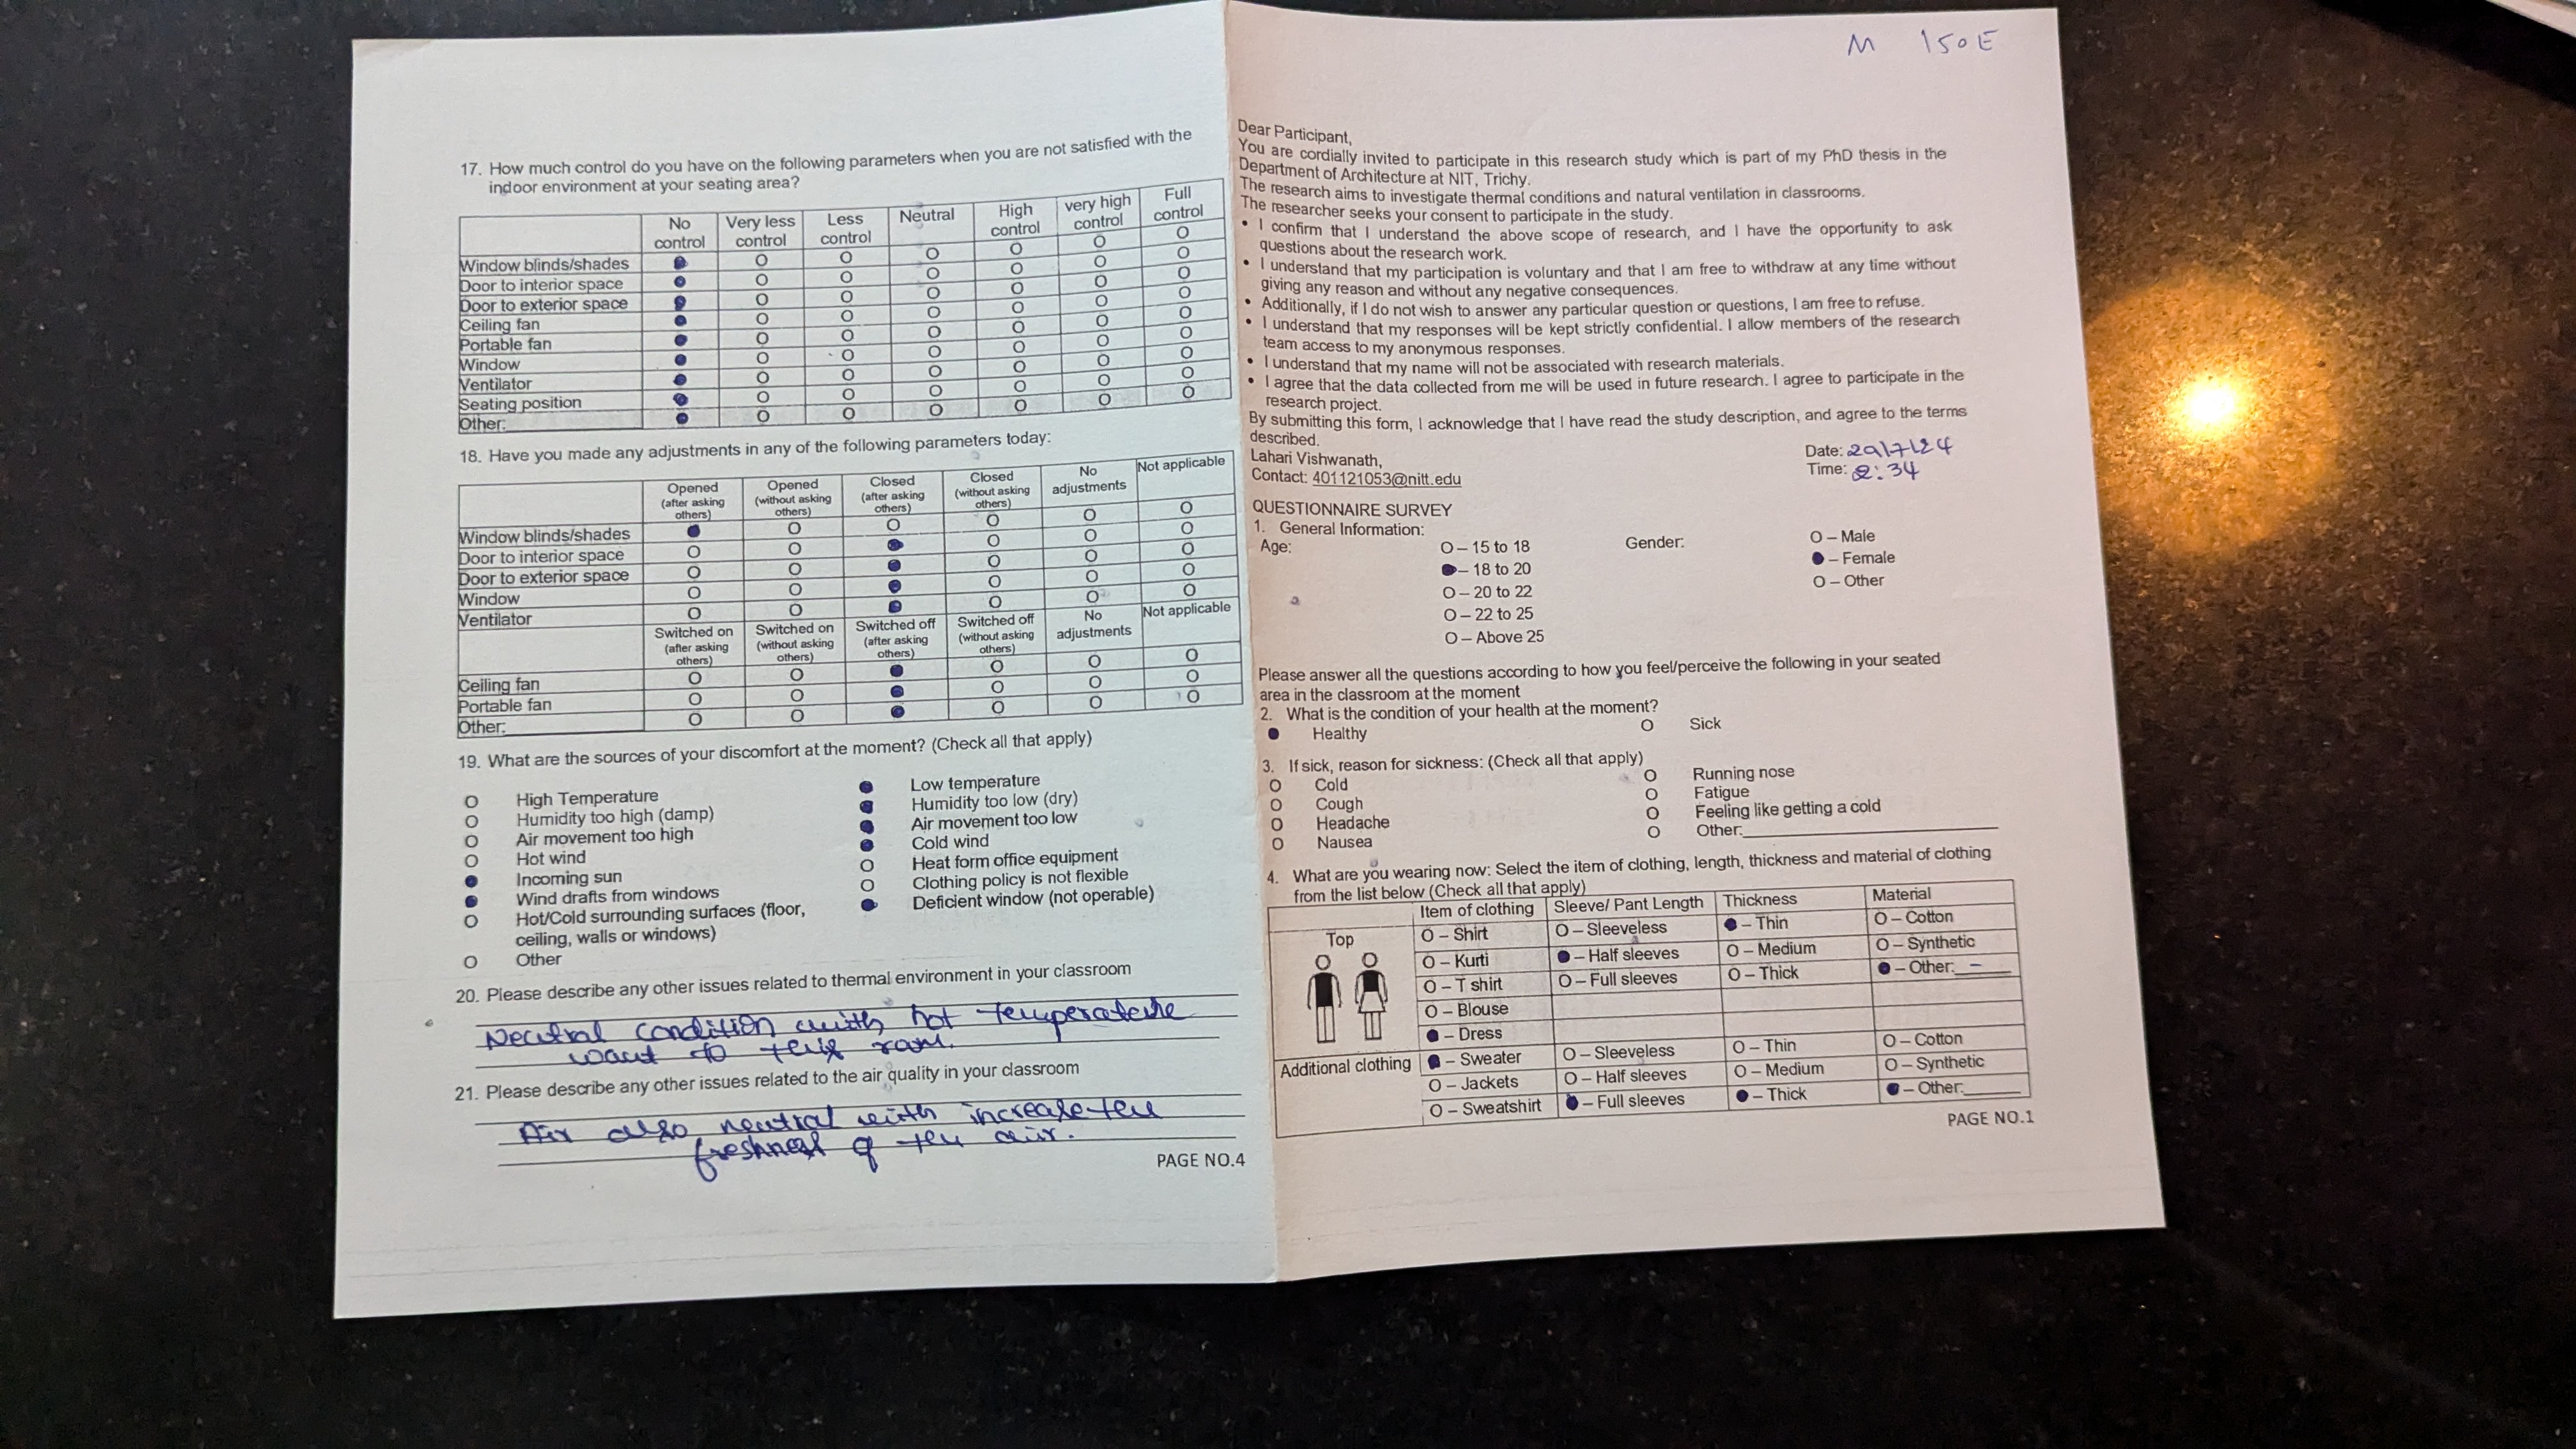 17. How much control do you have on the following parameters when you are not satisfied with the
indoor environment at your seating area?
No control Very less control Less control Neutral High control very high control Full control
Window blinds/shades ● O O O O O O
Door to interior space ● O O O O O O
Door to exterior space ● O O O O O O
Ceiling fan ● O O O O O O
Portable fan ● O O O O O O
Window ● O O O O O O
Ventilator ● O O O O O O
Seating position ● O O O O O O
Other: ● O O O O O O
18. Have you made any adjustments in any of the following parameters today:
Opened (after asking others) Opened (without asking others) Closed (after asking others) Closed (without asking others) No adjustments Not applicable
Window blinds/shades ● O O O O O
Door to interior space O O ● O O O
Door to exterior space O O ● O O O
Window O O ● O O O
Ventilator O O ● O O O
Switched on (after asking others) Switched on (without asking others) Switched off (after asking others) Switched off (without asking others) No adjustments Not applicable
Ceiling fan O O ● O O O
Portable fan O O ● O O O
Other: O O ● O O O
19. What are the sources of your discomfort at the moment? (Check all that apply)
O High Temperature ● Low temperature
O Humidity too high (damp) ● Humidity too low (dry)
O Air movement too high ● Air movement too low
O Hot wind ● Cold wind
● Incoming sun O Heat form office equipment
● Wind drafts from windows O Clothing policy is not flexible
O Hot/Cold surrounding surfaces (floor, ● Deficient window (not operable)
ceiling, walls or windows)
O Other
20. Please describe any other issues related to thermal environment in your classroom
Neutral condition with hot temperature
want to this
21. Please describe any other issues related to the air quality in your classroom
Air also neutral with increase the
freshness of the air.
PAGE NO.4
M 150E
Dear Participant,
You are cordially invited to participate in this research study which is part of my PhD thesis in the
Department of Architecture at NIT, Trichy.
The research aims to investigate thermal conditions and natural ventilation in classrooms.
The researcher seeks your consent to participate in the study.
• I confirm that I understand the above scope of research, and I have the opportunity to ask
questions about the research work.
• I understand that my participation is voluntary and that I am free to withdraw at any time without
giving any reason and without any negative consequences.
• Additionally, if I do not wish to answer any particular question or questions, I am free to refuse.
• I understand that my responses will be kept strictly confidential. I allow members of the research
team access to my anonymous responses.
• I understand that my name will not be associated with research materials.
• I agree that the data collected from me will be used in future research. I agree to participate in the
research project.
By submitting this form, I acknowledge that I have read the study description, and agree to the terms
described.
Lahari Vishwanath,
Contact: 401121053@nitt.edu
Date: 29/7/24
Time: 2:34
QUESTIONNAIRE SURVEY
1. General Information:
Age: O – 15 to 18 Gender: O – Male
● – 18 to 20 ● – Female
O – 20 to 22 O – Other
O – 22 to 25
O – Above 25
Please answer all the questions according to how you feel/perceive the following in your seated
area in the classroom at the moment
2. What is the condition of your health at the moment?
● Healthy O Sick
3. If sick, reason for sickness: (Check all that apply)
O Cold O Running nose
O Cough O Fatigue
O Headache O Feeling like getting a cold
O Nausea O Other:
4. What are you wearing now: Select the item of clothing, length, thickness and material of clothing
from the list below (Check all that apply)
Item of clothing Sleeve/ Pant Length Thickness Material
Top O – Shirt O – Sleeveless ● – Thin O – Cotton
O – Kurti ● – Half sleeves O – Medium O – Synthetic
O – T shirt O – Full sleeves O – Thick ● – Other: –
O – Blouse
● – Dress
Additional clothing ● – Sweater O – Sleeveless O – Thin O – Cotton
O – Jackets O – Half sleeves O – Medium O – Synthetic
O – Sweatshirt ● – Full sleeves ● – Thick ● – Other:
PAGE NO.1